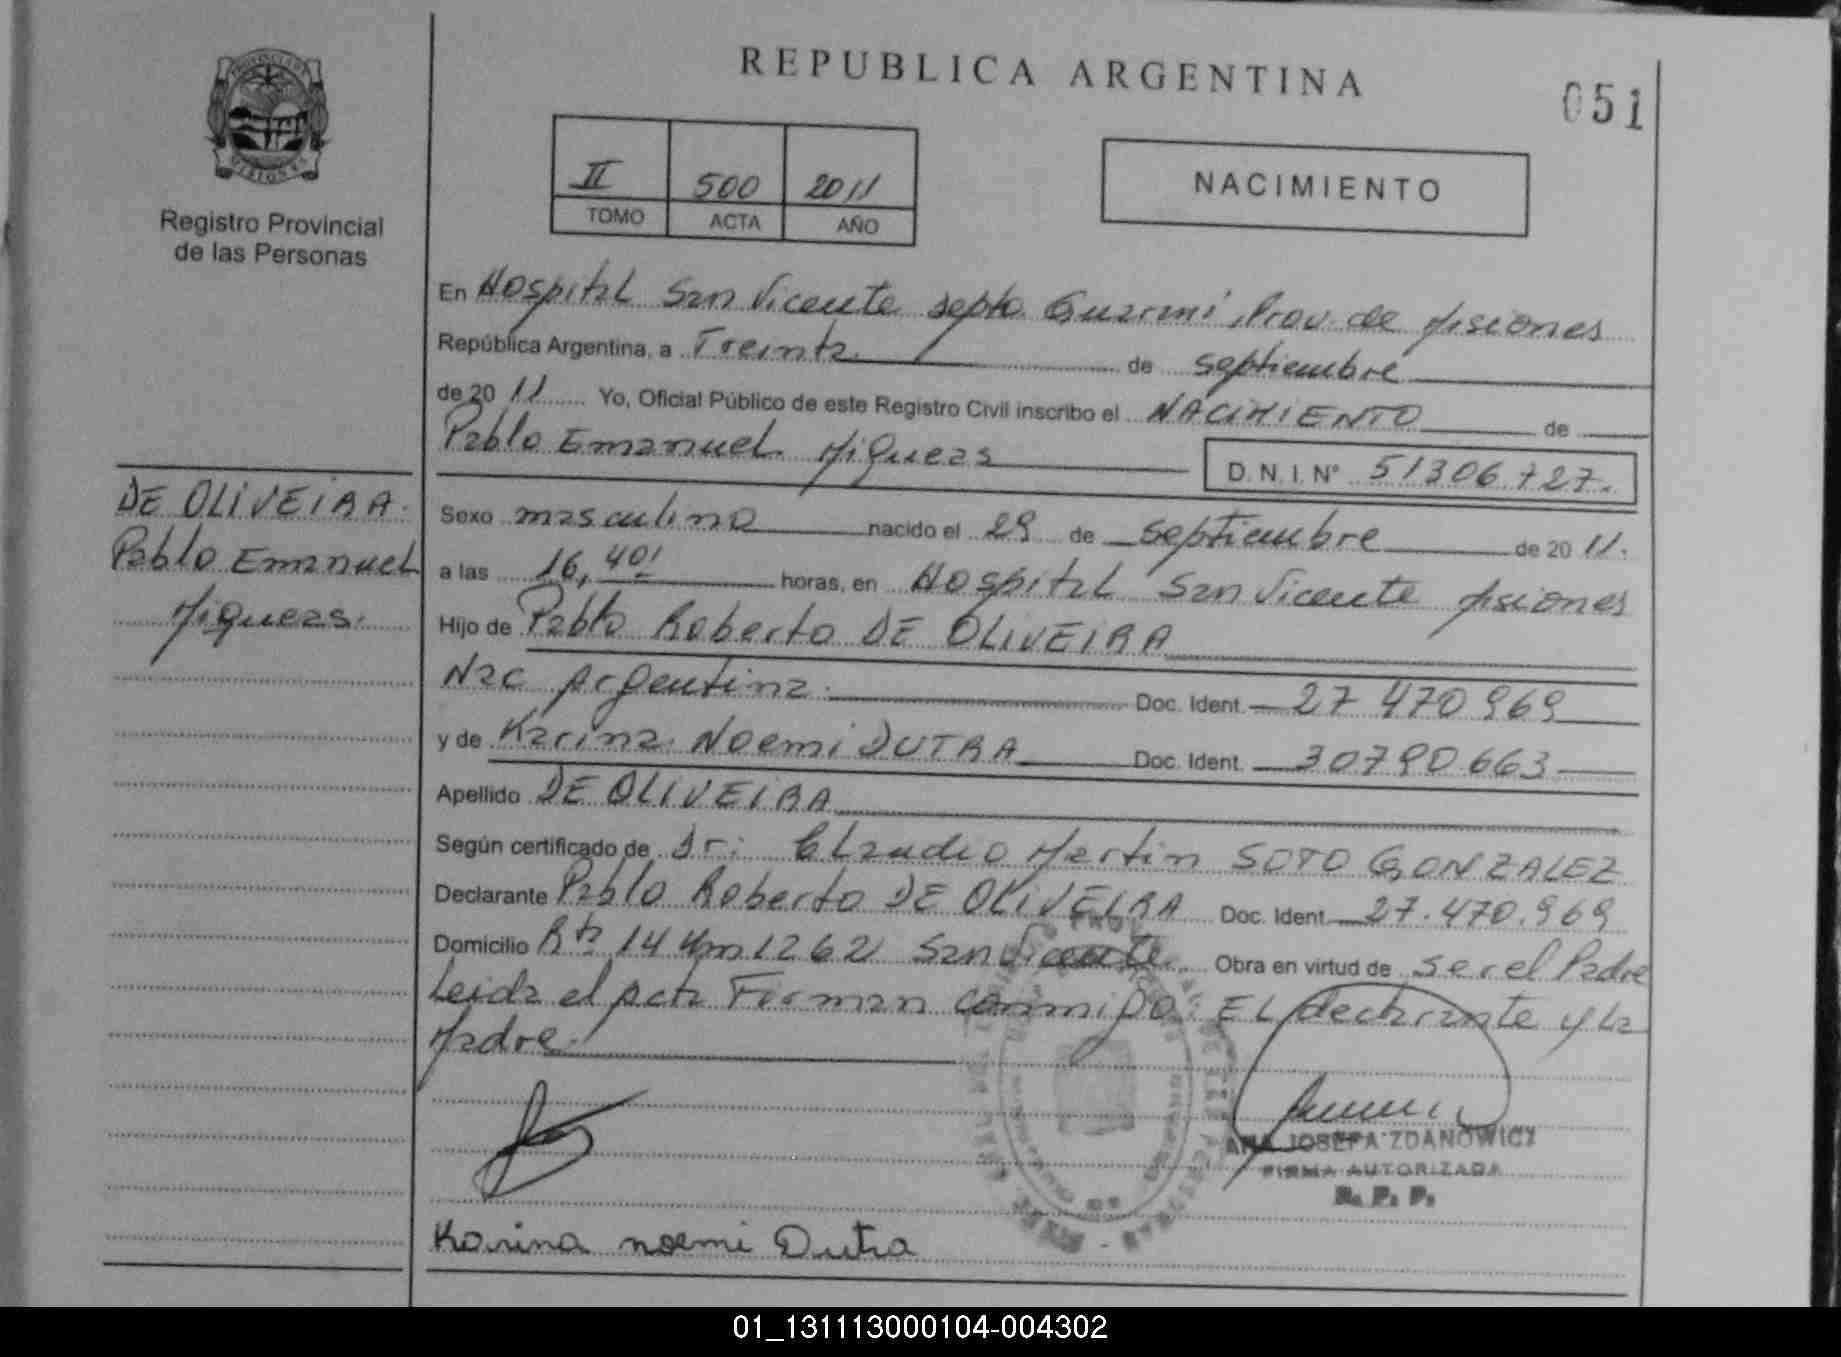 REPUBLICA ARGENTINA
051
PROVINCIA DE
MISIONES
Registro Provincial
de las Personas
II 500 2011
TOMO ACTA AÑO
NACIMIENTO
En Hospital San Vicente Depto Guarani, Prov. de Misiones
República Argentina, a Treinta de septiembre
de 20 11 Yo, Oficial Público de este Registro Civil inscribo el NACIMIENTO de
Pablo Emanuel Miqueas D.N.I. N° 51306727.
DE OLIVEIRA
Pablo Emanuel
Miqueas.
Sexo masculino nacido el 29 de septiembre de 20 11.
a las 16,40' horas, en Hospital San Vicente Misiones
Hijo de Pablo Roberto DE OLIVEIRA
Nac Argentina. Doc. Ident. 27 470 969
y de Karina Noemi DUTRA Doc. Ident. 30790663
Apellido DE OLIVEIRA
Según certificado de Dr: Claudio Martin SOTO GONZALEZ
Declarante Pablo Roberto DE OLIVEIRA Doc. Ident. 27.470.969
Domicilio Rta 14 Km 1262 San Vicente. Obra en virtud de ser el Padre
Leida el Acta Firman conmigo: EL declarante y La
Madre.
ANA JOSEFA ZDANOWICZ
FIRMA AUTORIZADA
R. P. P.
Karina noemi Dutra
01_131113000104-004302